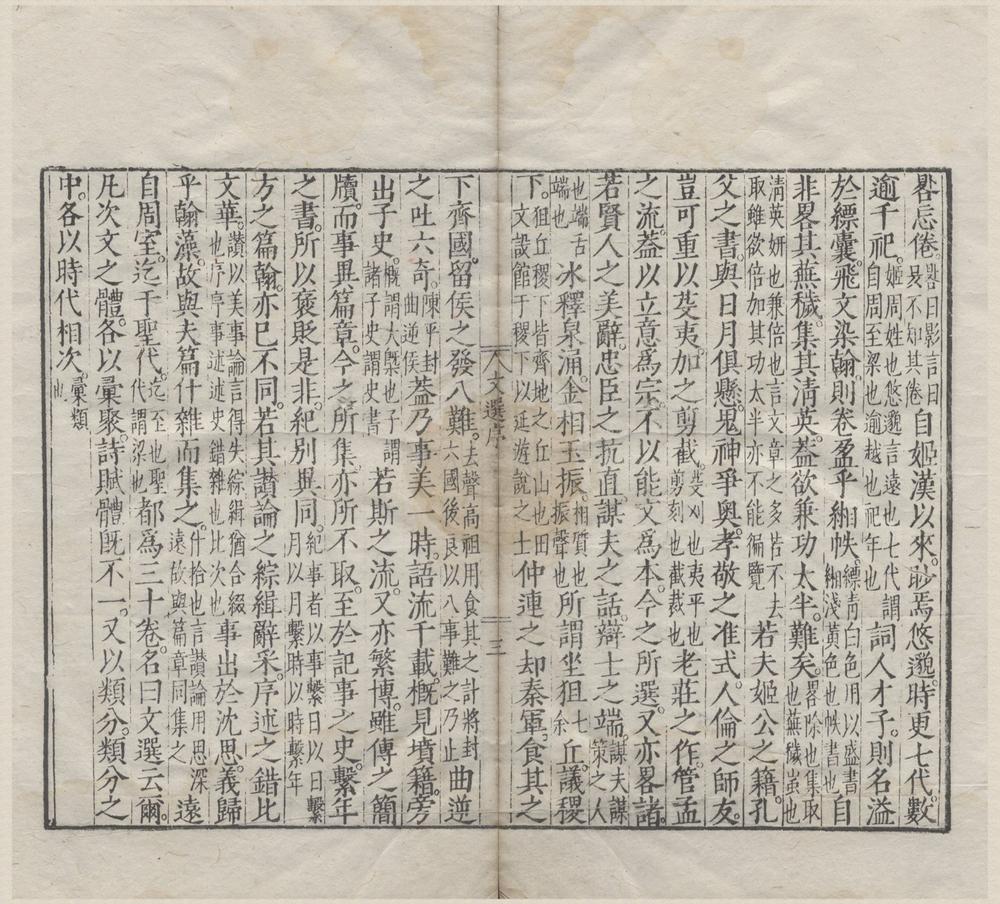 晷忘倦晷日影言日晷不知其倦自姬漢以來眇焉悠邈時更七代數
逾千祀姬周姓也悠邈言遠也七代謂自周至梁也逾越也祀年也詞人才子則名溢
於縹囊飛文染翰則卷盈乎緗帙縹青白色用以盛書緗淺黃色也帙書也自
非畧其蕪穢集其清英蓋欲兼功太半難矣畧除也集取也蕪穢䖝也
清英妍也兼倍也言文章之多皆不去取雖欲倍加其功太半亦不能徧覽若夫姬公之籍孔
父之書與日月俱懸鬼神爭奧孝敬之准式人倫之師友
豈可重以芟夷加之剪截芟刈也夷平也剪刻也截裁也老莊之作管孟
之流蓋以立意爲宗不以能文爲本今之所選又亦畧諸
若賢人之美辭忠臣之抗直謀夫之話辯士之端謀夫謀策之人
也端舌端也冰釋泉涌金相玉振相質也振聲也所謂坐狙七余丘議稷
下狙丘稷下皆齊地之丘山也田文設館于稷下以延游說之士仲連之却秦軍食其之
文選序
三
下齊國留侯之發八難去聲高祖用食其之計將封六國後良以八事難之乃止曲逆
之吐六奇陳平封曲逆侯蓋乃事美一時語流千載槪見墳籍旁
出子史槪謂大槩也子謂諸子史謂史書若斯之流又亦繁博雖傳之簡
牘而事異篇章今之所集亦所不取至於記事之史繫年
之書所以褒貶是非紀別異同紀事者以事繫日以日繫月以月繫時以時繫年
方之篇翰亦已不同若其讃論之綜緝辭采序述之錯比
文華讃以美事論言得失綜緝猶合綴也序序事述述史錯雜也比次也事出於沈思義歸
乎翰藻故與夫篇什雜而集之什拾也言讃論用思深遠故與篇章同集之遠
自周室迄于聖代迄至也聖代謂梁也都爲三十卷名曰文選云爾
凡次文之體各以彙聚詩賦體旣不一又以類分類分之
中各以時代相次彙類也